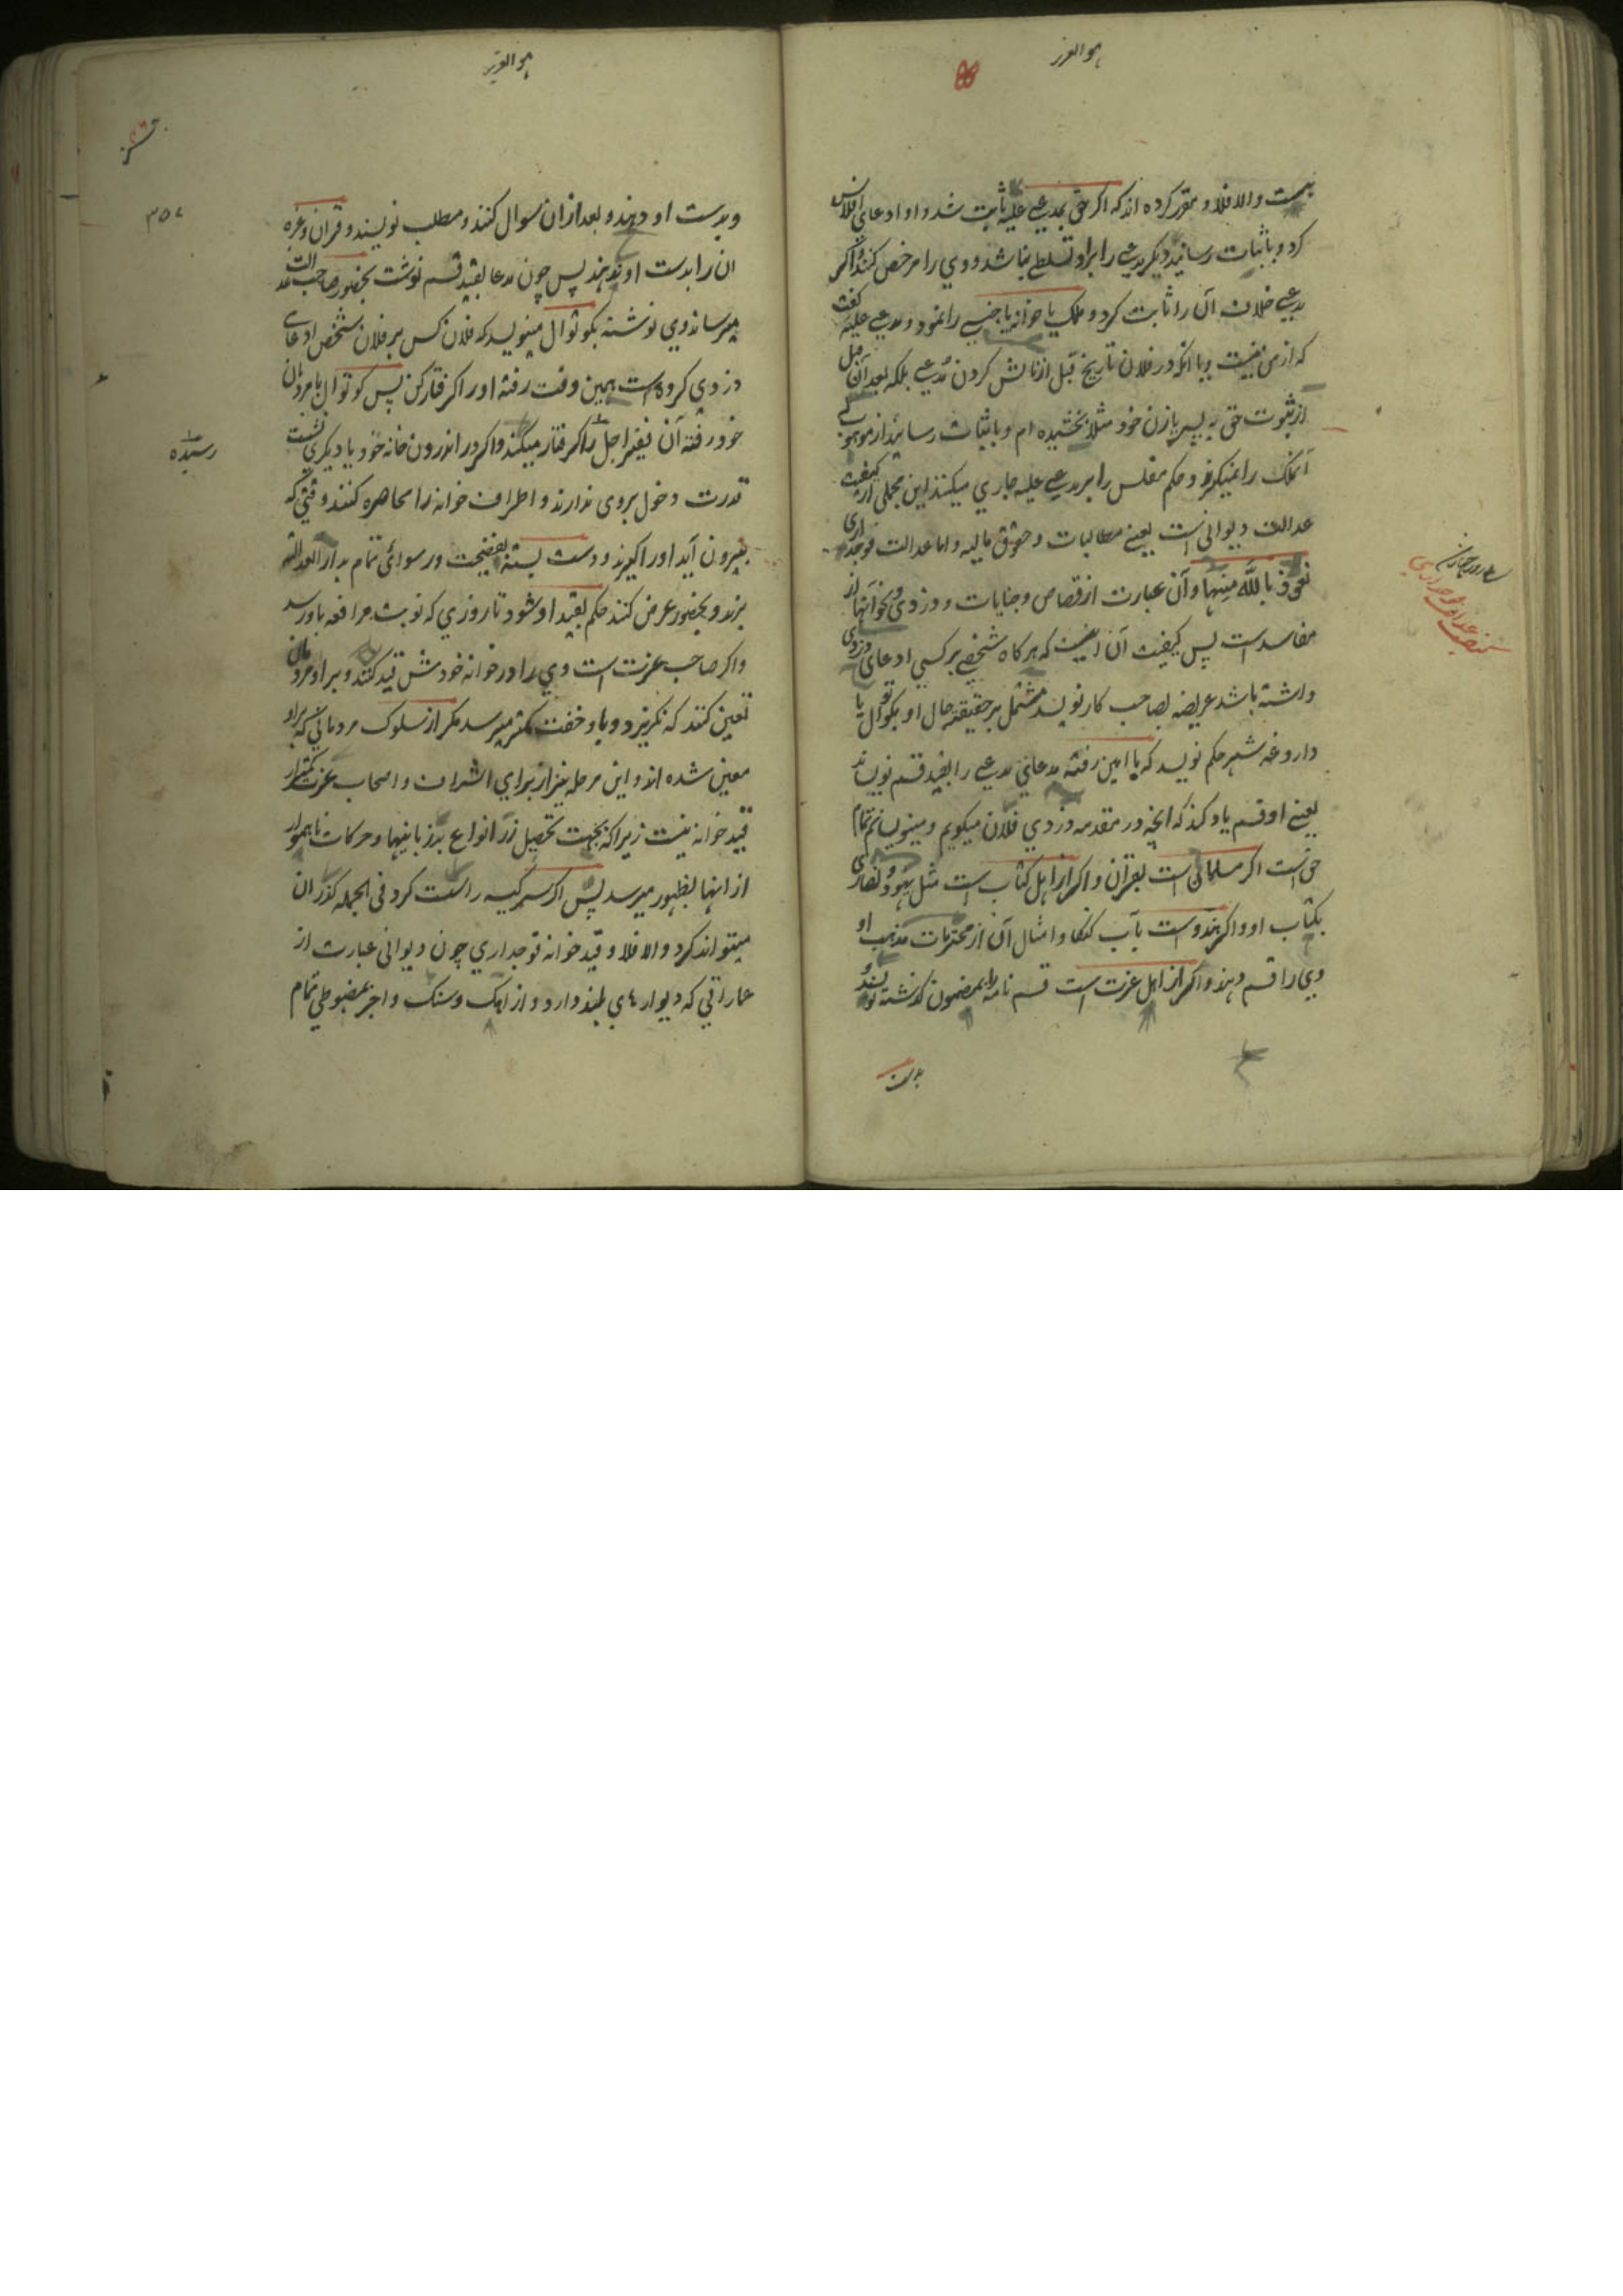 هو العزیز
بهست والا فلا و مقرر کرده اند که اکر حق بمدعی علیه ثابت شد و او ادعای افلاس
کرد و باثبات رسانید دیکر مدعی را براو تسلطی نباشد و وی را مرخص کنند و اکر
مدعی خلاف آن را ثابت کرد و ملک یا خوانه یا جنسی را نمود و مدعی علیه کفت
که از من نیست و یا انکه در فلان تاریخ قبل از نالش کردن مدعی بلکه بعد آن قبل
از ثبوت حق به پسر یا زن خود مثلا بخشیده ام و باثبات رساند از موهوب له
آنملک را نمیکیرند و حکم مفلس را بر مدعی علیه جاری میکنند این مجملی از کیفیت
عدالت دیوانی است یعنی مطالبات و حقوق مالیه و اما عدالت فوجداری
نعوذ بالله منها و آن عبارت از قصاص و جنایات و دزدی و نحو آنها از
مفاسد است پس کیفیت آن اینست که هرکاه شخصی بر کسی ادعای دزدی
داشته باشد عریضه بصاحب کار نویسد مشتمل بر حقیقة حال او بکوتوال یا
داروغه شهر حکم نویسد که با امین رفته مدعای مدعی را بقید قسم نویساند
یعنی او قسم یاد کند که انچه در مقدمه دزدی فلان میکویم و مینویسانم تمام
حق است اکر مسلمانست بقران و اکر از اهل کتاب است مثل یهود و نصاری
بکتاب او و اکر هندوست بآب کنکا و امثال آن از محترمات مذهب او
وی را قسم دهند و اکر از اهل عزت است قسم نامه را بمضمون کذشته نویسند
بدست
عدالت فوجداری
هو العزیز
۳۵۷
و بدست او دهند و بعد از ان سوال کنند و مطلب نویسند و قران و غیره
ان را بدست او ندهند پس چون مدعا بقید قسم نوشت بحضور صاحب عدالت
میرساند وی نوشته بکوتوال مینویسد که فلان کس بر فلان شخص ادعای
دزدی کرده است همین وقت رفته او را کرفتار کن پس کوتوال با مردمان
خود رفته آن فقیر اجل را کرفتار میکند و اکر در اندرون خانه خود یا دیکری نشست
رسیده
قدرت دخول بروی ندارند و اطراف خوانه را محاصره کنند وقتی که
بیرون آید او را کیرند و دست بسته بفضیحت و رسوائی تمام بدار العدالة
برند و بحضور عرض کنند حکم بقید او شود تا روزی که نوبت مرافعه باو رسد
و اکر صاحب عزت است وی را در خوانه خودش قید کنند و بر او مردمان
تعین کنند که نکریزد و باو خفت کمتر میرسد مکر از سلوک مردمانی که براو
معین شده اند و این مرحله نیز از برای اشراف و اصحاب عزت کمتر از
قید خوانه نیست زیرا که بجهت تحصیل زر انواع بدزبانیها و حرکات ناهموار
از انها بظهور میرسد پس اکر سر کیسه را سست کرد فی الجمله کذران
میتواند کرد والا فلا و قید خوانه فوجداری چون دیوانی عبارت از
عماراتی که دیوارهای بلند دارد و از اهک و سنک و اجر بمضبوطی تمام